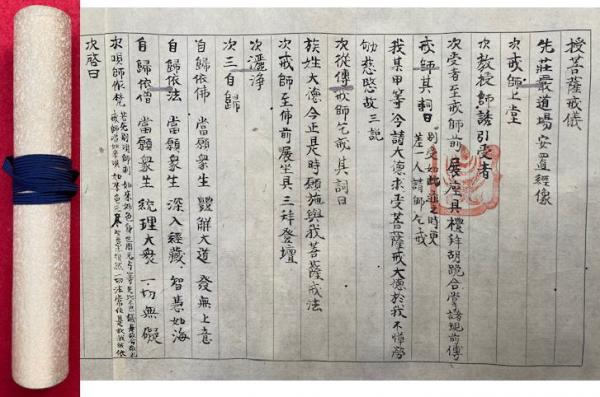 授菩薩戒儀
先荘嚴道場安置經像
次戒師上堂
次教授師誘引受者
次受者至戒師前展座具禮拜胡跪合掌請現前傳
戒師其詞曰 別受如此通受時更差一人請師乞戒
我某甲等今請大德求受菩薩戒大德於我不憚勞
慈愍故三說
次從傳戒師乞戒其詞曰
族姓大德今正是時願施與我菩薩戒法
次戒師至佛前展坐具三拜登壇
次灑淨
次三自歸
自歸依佛 當願衆生 體解大道 發無上意
自歸依法 當願衆生 深入經藏 智慧如海
自歸依僧 當願衆生 統理大衆 一切無礙
次唄師作梵
次啓白